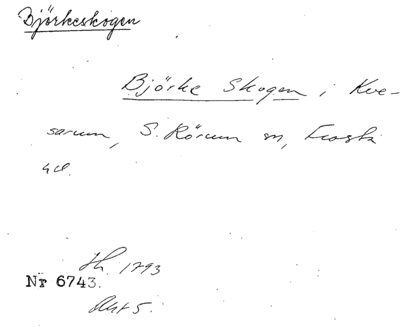 Björkeskogen
Björke Skogen i Kve-
sarum, S. Rörum sn, Frosta
hd.
Sh. 1793
Nr 6743.
Akt 5.